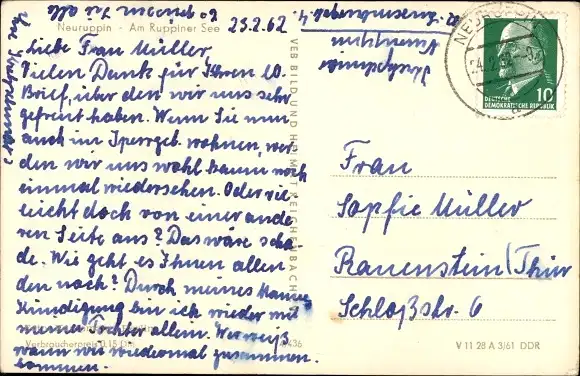 Neuruppin - Am Ruppiner See
23.2.62
Liebe Frau Müller.
Vielen Dank für Ihren lb.
Brief, über den wir uns sehr
gefreut haben. Wenn Sie nun
auch im Sperrgeb. wohnen, wer
den wir uns wohl kaum noch
einmal wiedersehen. Oder viel
leicht doch von einer ande
ren Seite aus? Das wäre scha
de. Wie geht es Ihnen allen
den noch? Durch meines Mannes
Kündigung bin ich wieder mit
meiner Tochter allein. Wer weiß,
wann wir wiedermal zusammen
kommen.
Verbraucherpreis 0,15 DM
VEB BILD UND HEIMAT REICHENBACH
Neuruppin
NEURUPPIN
24.2.62
DEUTSCHE
DEMOKRATISCHE REPUBLIK
10
Frau
Sophie Müller
Rauenstein/Thür
Schloßstr. 6
V 11 28 A 3/61 DDR